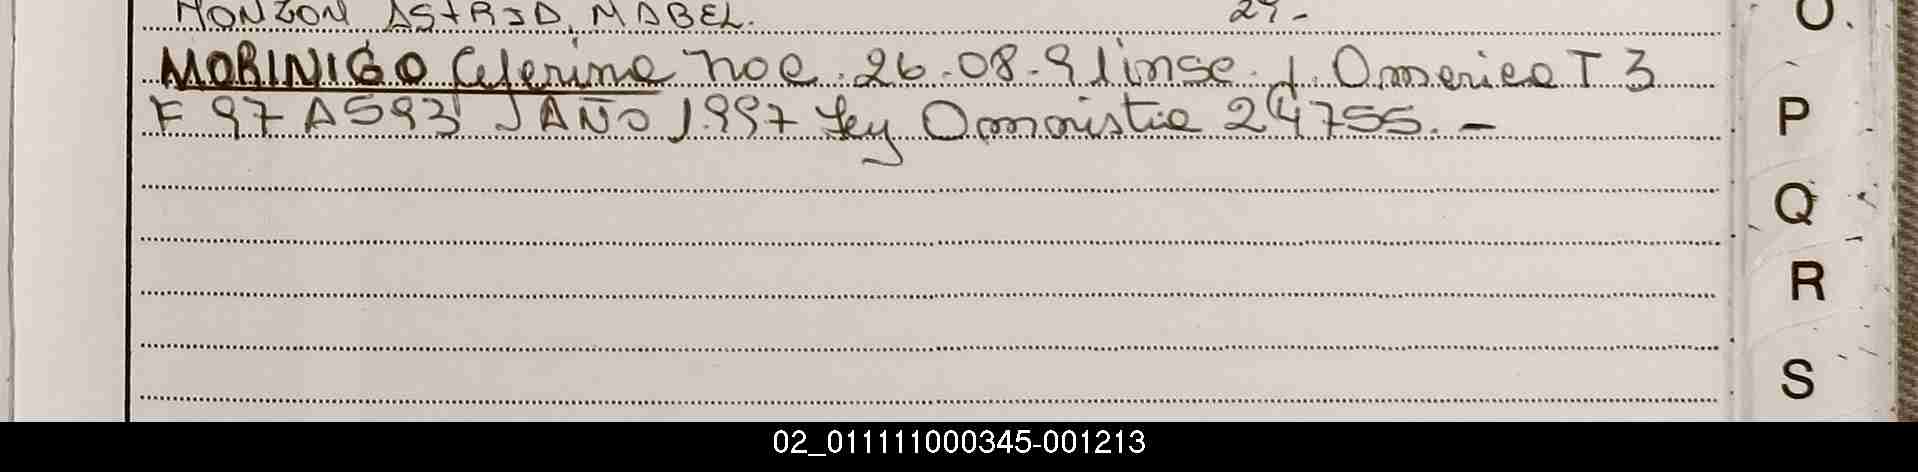 MONZON ASTRID, MABEL. 29-
MORINIGO Ceferina noe. 26-08-91 insc. J. America T 3
F 97 A 593 J AÑO 1997 Ley Amnistia 24755.-
O.
P
Q
R
S
02_011111000345-001213